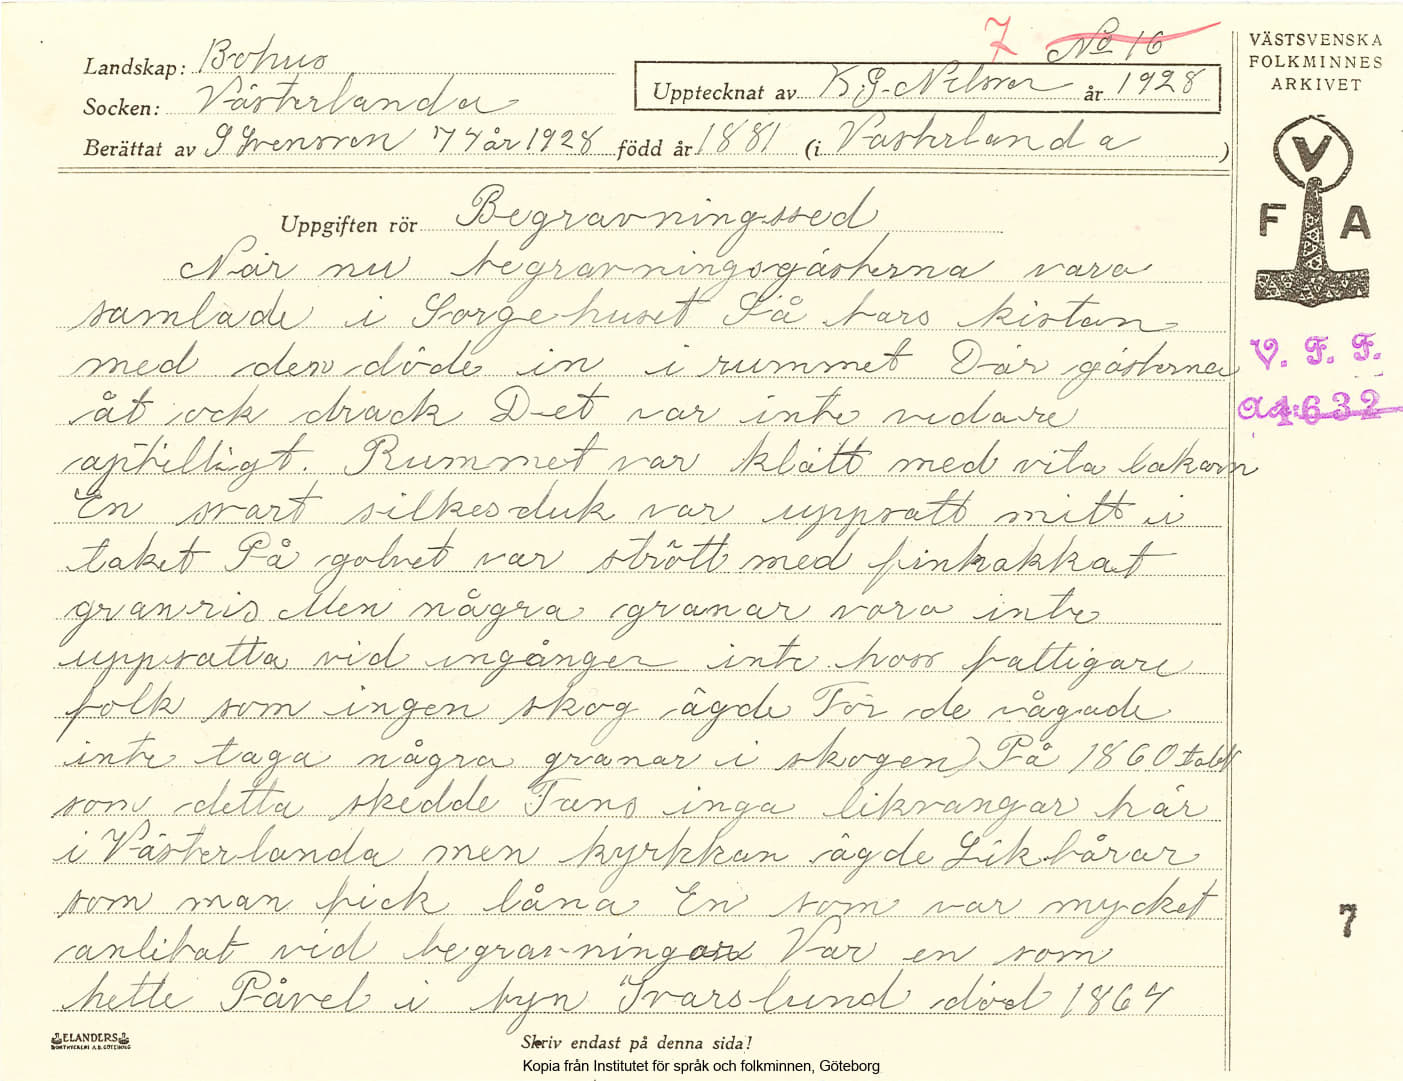 7 No 16
VÄSTSVENSKA
FOLKMINNES
ARKIVET
Landskap: Bohus
Upptecknat av K.G. Nilsson år 1928
Socken: Västerlanda
Berättat av S Svensson 74 år 1928 född år 1881 (i Västerlanda)
V
F A
Uppgiften rör Begravningssed
När nu begravningsgästerna voro
samlade i Sorgehuset Så bars kistan
med den döde in i rummet Där gästerna
åt ock drack Det var inte vidare
aptitligt. Rummet var klätt med vita lakan
En svart silkesduk var uppsatt mitt i
taket På golvet var strött med finhakkat
granris Men några granar voro inte
uppsatta vid ingången inte hoss fattigare
folk som ingen skog ägde För de vågade
inte taga några granar i skogen) På 1860 talet
som detta skedde Fans inga likvangar här
i Västerlanda men kyrkkan ägde Likbårar
som man fick låna En som var mycket
anlitat vid begravningar Var en som
hette Påvel i byn Ivarslund död 1864
V. F. F.
1632
7
ELANDERS
BOKTRYCKERI A.B. GÖTEBORG
Skriv endast på denna sida!
Kopia från Institutet för språk och folkminnen, Göteborg